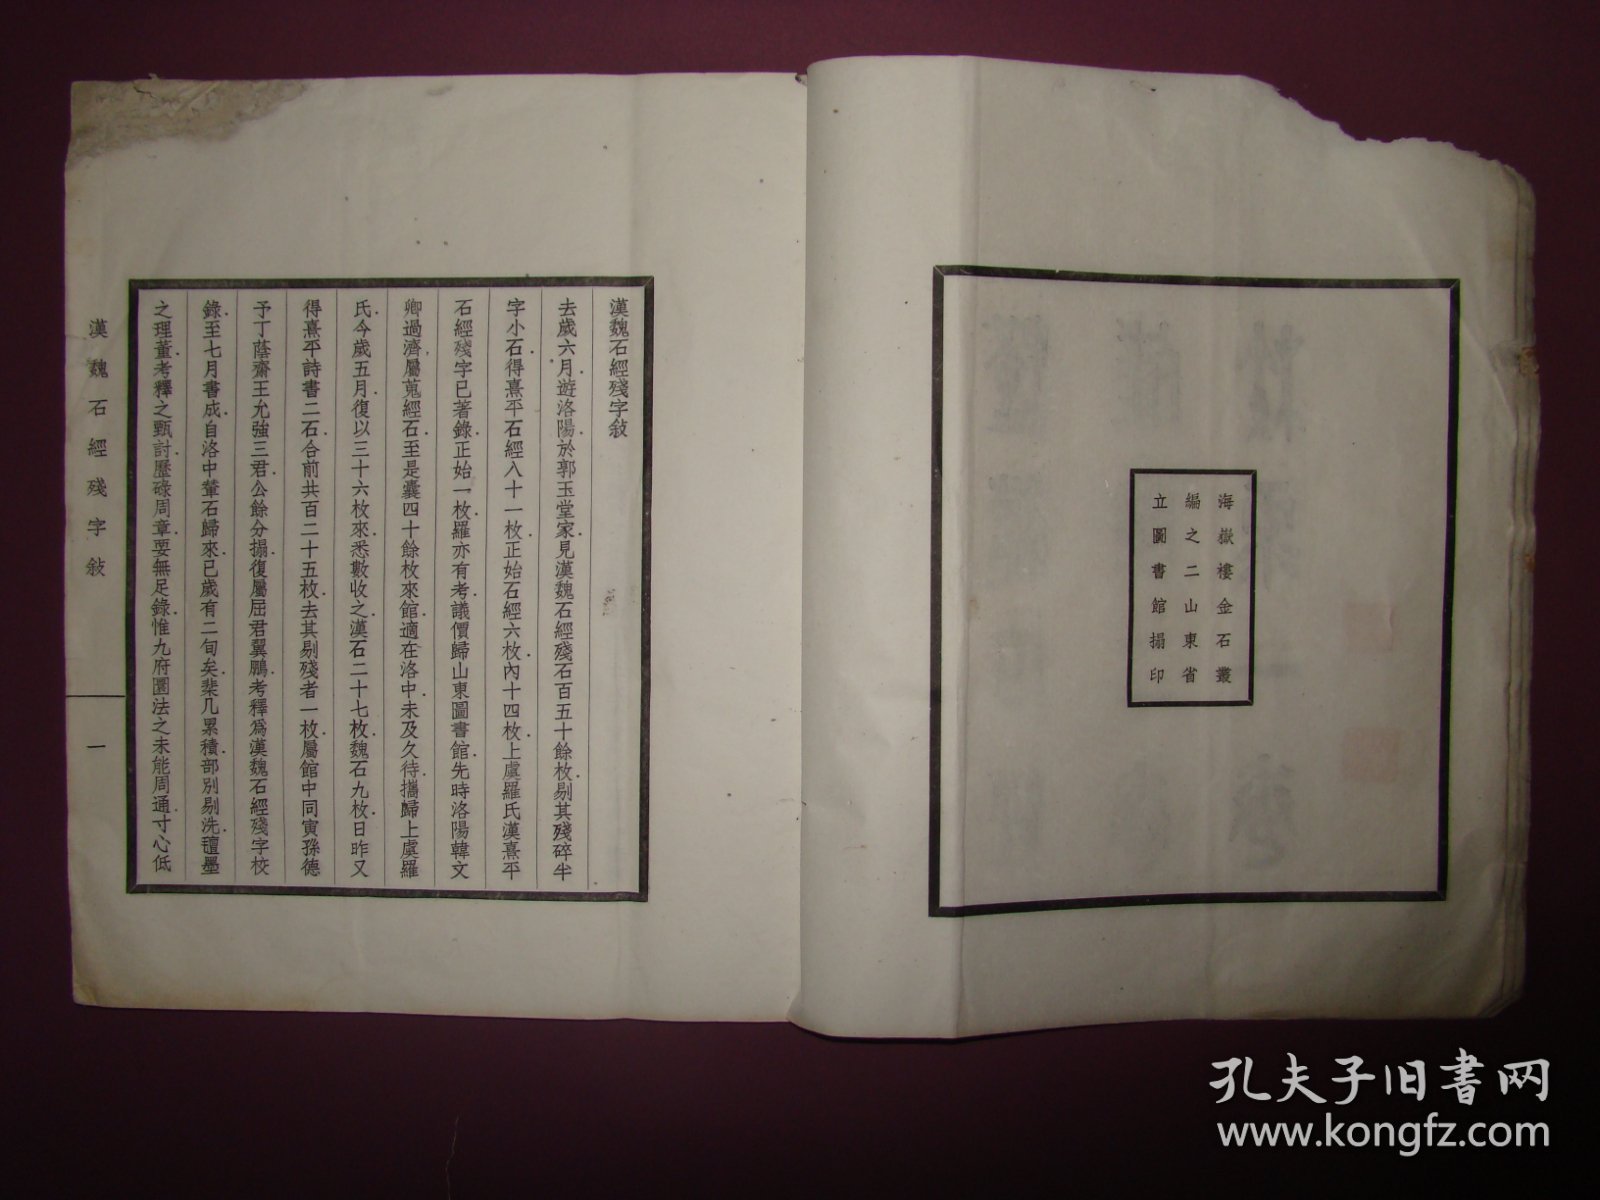 海嶽樓金石叢
編之二山東省
立圖書館搨印
漢魏石經殘字敍
去歲六月遊洛陽於郭玉堂家見漢魏石經殘石百五十餘枚剔其殘碎半
字小石得熹平石經八十一枚正始石經六枚內十四枚上虞羅氏漢熹平
石經殘字已著錄正始一枚羅亦有考議價歸山東圖書館先時洛陽韓文
卿過濟屬蒐經石至是囊四十餘枚來館適在洛中未及久待攜歸上虞羅
氏今歲五月復以三十六枚來悉數收之漢石二十七枚魏石九枚日昨又
得熹平詩書二石合前共百二十五枚去其剔殘者一枚屬館中同寅孫德
予丁蔭齋王允強三君公餘分搨復屬屈君翼鵬考釋爲漢魏石經殘字校
錄至七月書成自洛中輦石歸來已歲有二旬矣棐几累積部別剔洗氊墨
之理董考釋之甄討歷碌周章要無足錄惟九府圜法之未能周通寸心低
漢魏石經殘字敍
一
孔夫子旧书网
www.kongfz.com